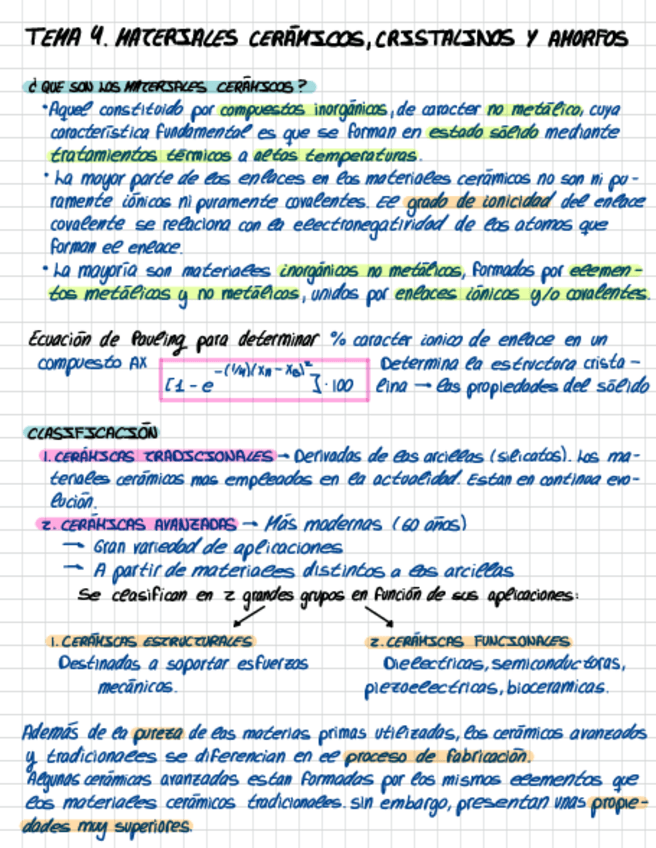 TEMA 4. MATERIALES CERÁMICOS, CRISTALINOS Y AMORFOS
¿QUE SON LOS MATERIALES CERÁMICOS?
•Aquel constituido por compuestos inorgánicos, de caracter no metálico, cuya
característica fundamental es que se forman en estado sólido mediante
tratamientos térmicos a altas temperaturas.
• La mayor parte de los enlaces en los materiales cerámicos no son ni pu-
ramente iónicos ni puramente covalentes. El grado de ionicidad del enlace
covalente se relaciona con la electronegatividad de los atomos que
forman el enlace.
• La mayoría son materiales inorgánicos no metálicos, formados por elemen-
tos metálicos y no metálicos, unidos por enlaces iónicos y/o covalentes.
Ecuación de Pauling para determinar % caracter ionico de enlace en un
compuesto AX [1 - e^-(1/4)(XA - XB)²] · 100 Determina la estructura crista-
lina → las propiedades del sólido
CLASIFICACIÓN
1. CERÁMICAS TRADICIONALES → Derivadas de las arcillas (silicatos). Los ma-
teriales cerámicos mas empleados en la actualidad. Estan en continua evo-
lución.
2. CERÁMICAS AVANZADAS → Más modernas (60 años)
→ Gran variedad de aplicaciones
→ A partir de materiales distintos a las arcillas
Se clasifican en 2 grandes grupos en función de sus aplicaciones:
1. CERÁMICAS ESTRUCTURALES
Destinadas a soportar esfuerzos
mecánicos.
2. CERÁMICAS FUNCIONALES
Dielectricas, semiconductoras,
piezoelectricas, bioceramicas.
Además de la pureza de las materias primas utilizadas, los cerámicos avanzados
y tradicionales se diferencian en el proceso de fabricación.
Algunas cerámicas avanzadas estan formadas por los mismos elementos que
los materiales cerámicos tradicionales. sin embargo, presentan unas propie-
dades muy superiores.